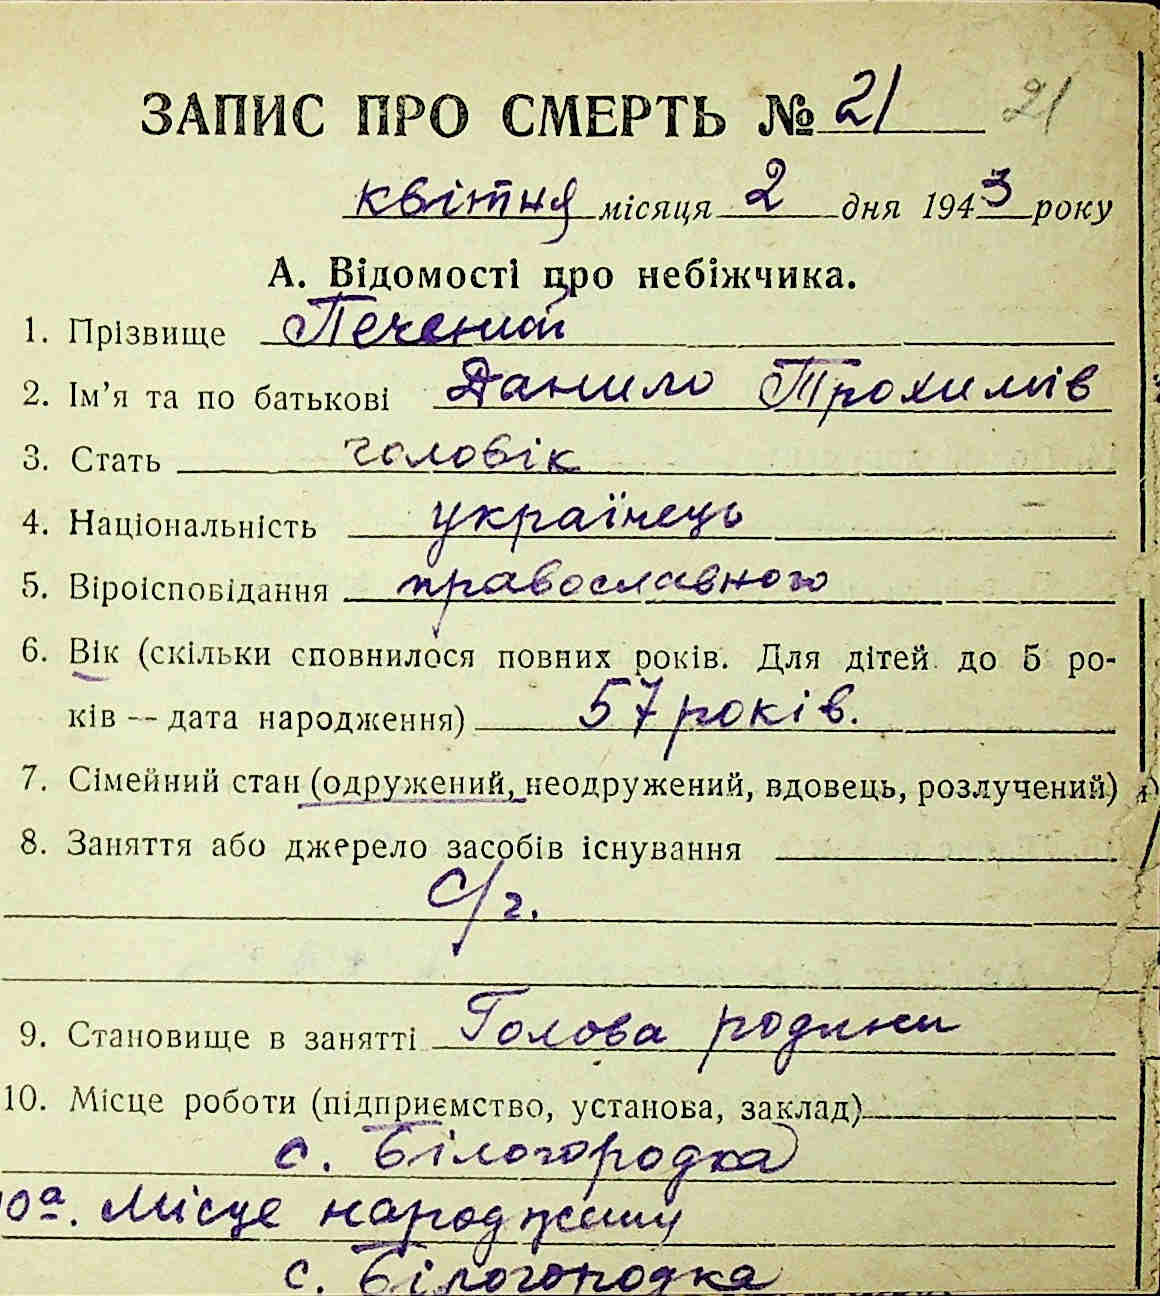 ЗАПИС ПРО СМЕРТЬ № 21 21
квітня місяця 2 дня 1943 року
А. Відомості про небіжчика.
1. Прізвище Печений
2. Ім'я та по батькові Данило Трохимів
3. Стать чоловік
4. Національність українець
5. Віроісповідання православного
6. Вік (скільки сповнилося повних років. Для дітей до 5 ро-
ків -- дата народження) 57 років.
7. Сімейний стан (одружений, неодружений, вдовець, розлучений)
8. Заняття або джерело засобів існування
С/г.
9. Становище в занятті Голова родини
10. Місце роботи (підприємство, установа, заклад)
с. Білогородка
10а. Місце народження
с. Білогородка